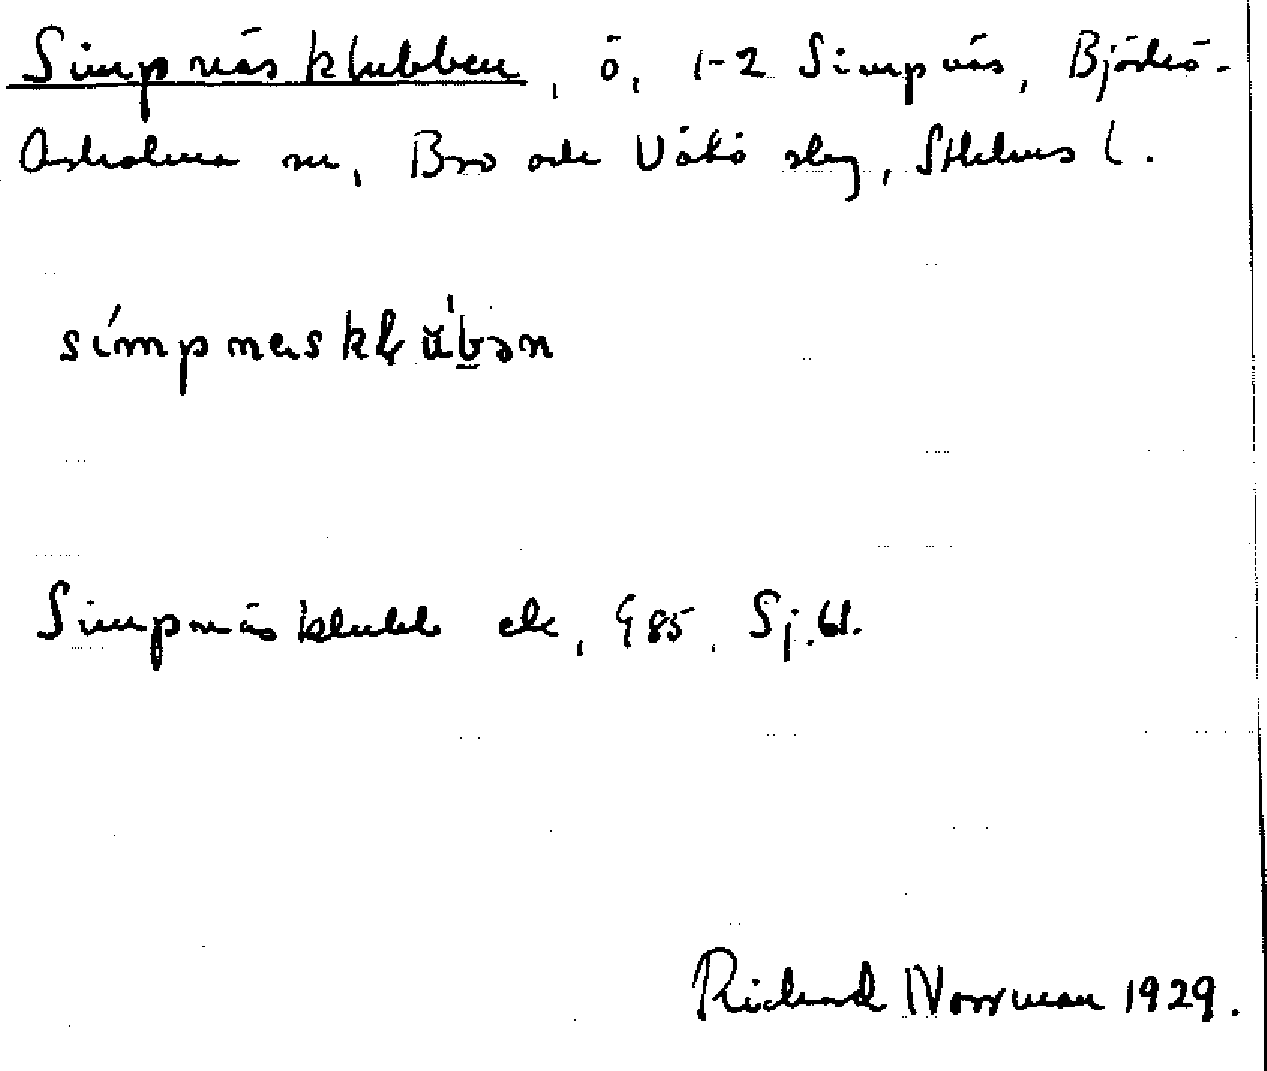 Simpnäsklubben, ö, 1-2 Simpnäs, Björkö-
Arholma sn, Bro och Vätö slg, Sthlms l.
simpnasklubən
Simpnäsklubb ek, G 85, Sj.bl.
Richard Norrman 1929.